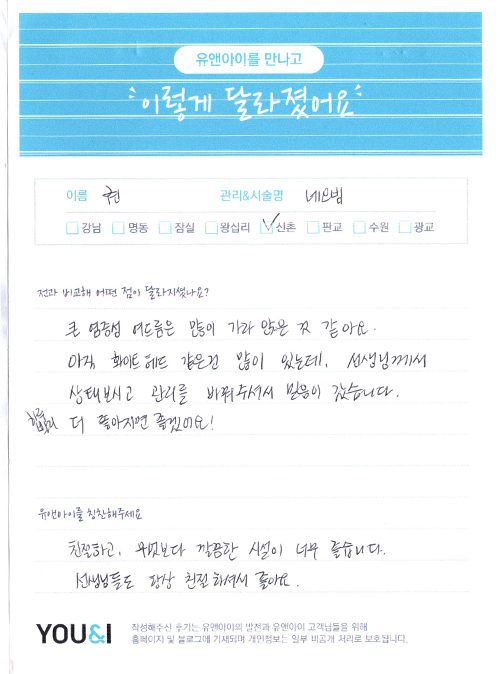 유앤아이를 만나고
이렇게 달라졌어요
이름 현 관리&시술명 네오빔
강남 명동 잠실 왕십리 신촌 판교 수원 광교
전과 비교해 어떤 점이 달라지셨나요?
큰 염증성 여드름은 많이 가라 앉은 것 같아요.
아직 화이트헤드 같은건 많이 있는데, 선생님께서
상태보시고 관리를 바꿔주셔서 믿음이 갔습니다.
더 좋아지면 좋겠어요!
유앤아이를 칭찬해주세요
친절하고, 무엇보다 깔끔한 시설이 너무 좋습니다.
선생님들도 항상 친절하셔서 좋아요.
YOU&I 작성해주신 후기는 유앤아이의 발전과 유앤아이 고객님들을 위해
홈페이지 및 블로그에 기재되며 개인정보는 일부 비공개 처리로 보호됩니다.